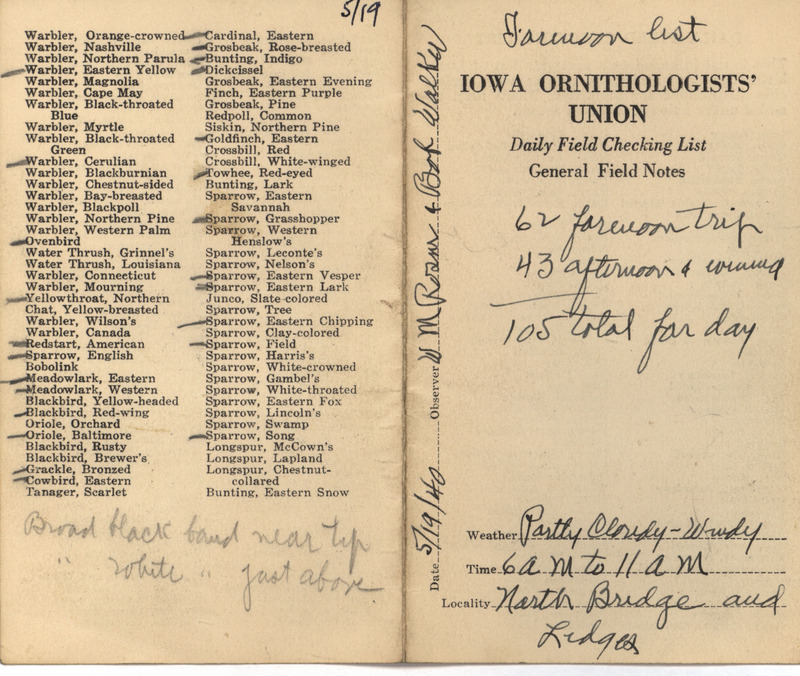 5/19
Warbler, Orange-crowned
Warbler, Nashville
Warbler, Northern Parula
Warbler, Eastern Yellow
Warbler, Magnolia
Warbler, Cape May
Warbler, Black-throated
Blue
Warbler, Myrtle
Warbler, Black-throated
Green
Warbler, Cerulian
Warbler, Blackburnian
Warbler, Chestnut-sided
Warbler, Bay-breasted
Warbler, Blackpoll
Warbler, Northern Pine
Warbler, Western Palm
Ovenbird
Water Thrush, Grinnel's
Water Thrush, Louisiana
Warbler, Connecticut
Warbler, Mourning
Yellowthroat, Northern
Chat, Yellow-breasted
Warbler, Wilson's
Warbler, Canada
Redstart, American
Sparrow, English
Bobolink
Meadowlark, Eastern
Meadowlark, Western
Blackbird, Yellow-headed
Blackbird, Red-wing
Oriole, Orchard
Oriole, Baltimore
Blackbird, Rusty
Blackbird, Brewer's
Grackle, Bronzed
Cowbird, Eastern
Tanager, Scarlet
Cardinal, Eastern
Grosbeak, Rose-breasted
Bunting, Indigo
Dickcissel
Grosbeak, Eastern Evening
Finch, Eastern Purple
Grosbeak, Pine
Redpoll, Common
Siskin, Northern Pine
Goldfinch, Eastern
Crossbill, Red
Crossbill, White-winged
Towhee, Red-eyed
Bunting, Lark
Sparrow, Eastern
Savannah
Sparrow, Grasshopper
Sparrow, Western
Henslow's
Sparrow, Leconte's
Sparrow, Nelson's
Sparrow, Eastern Vesper
Sparrow, Eastern Lark
Junco, Slate-colored
Sparrow, Tree
Sparrow, Eastern Chipping
Sparrow, Clay-colored
Sparrow, Field
Sparrow, Harris's
Sparrow, White-crowned
Sparrow, Gambel's
Sparrow, White-throated
Sparrow, Eastern Fox
Sparrow, Lincoln's
Sparrow, Swamp
Sparrow, Song
Longspur, McCown's
Longspur, Lapland
Longspur, Chestnut-
collared
Bunting, Eastern Snow
Broad black band near tip
" white " just above
Date 5/19/40 Observer W M Rosen & Bob Walker
Forenoon list
IOWA ORNITHOLOGISTS'
UNION
Daily Field Checking List
General Field Notes
62 forenoon trip
43 afternoon &
105 total for day
Weather Partly Cloudy - Windy
Time 6 A M to 11 A M
Locality North Bridge and
Ledges